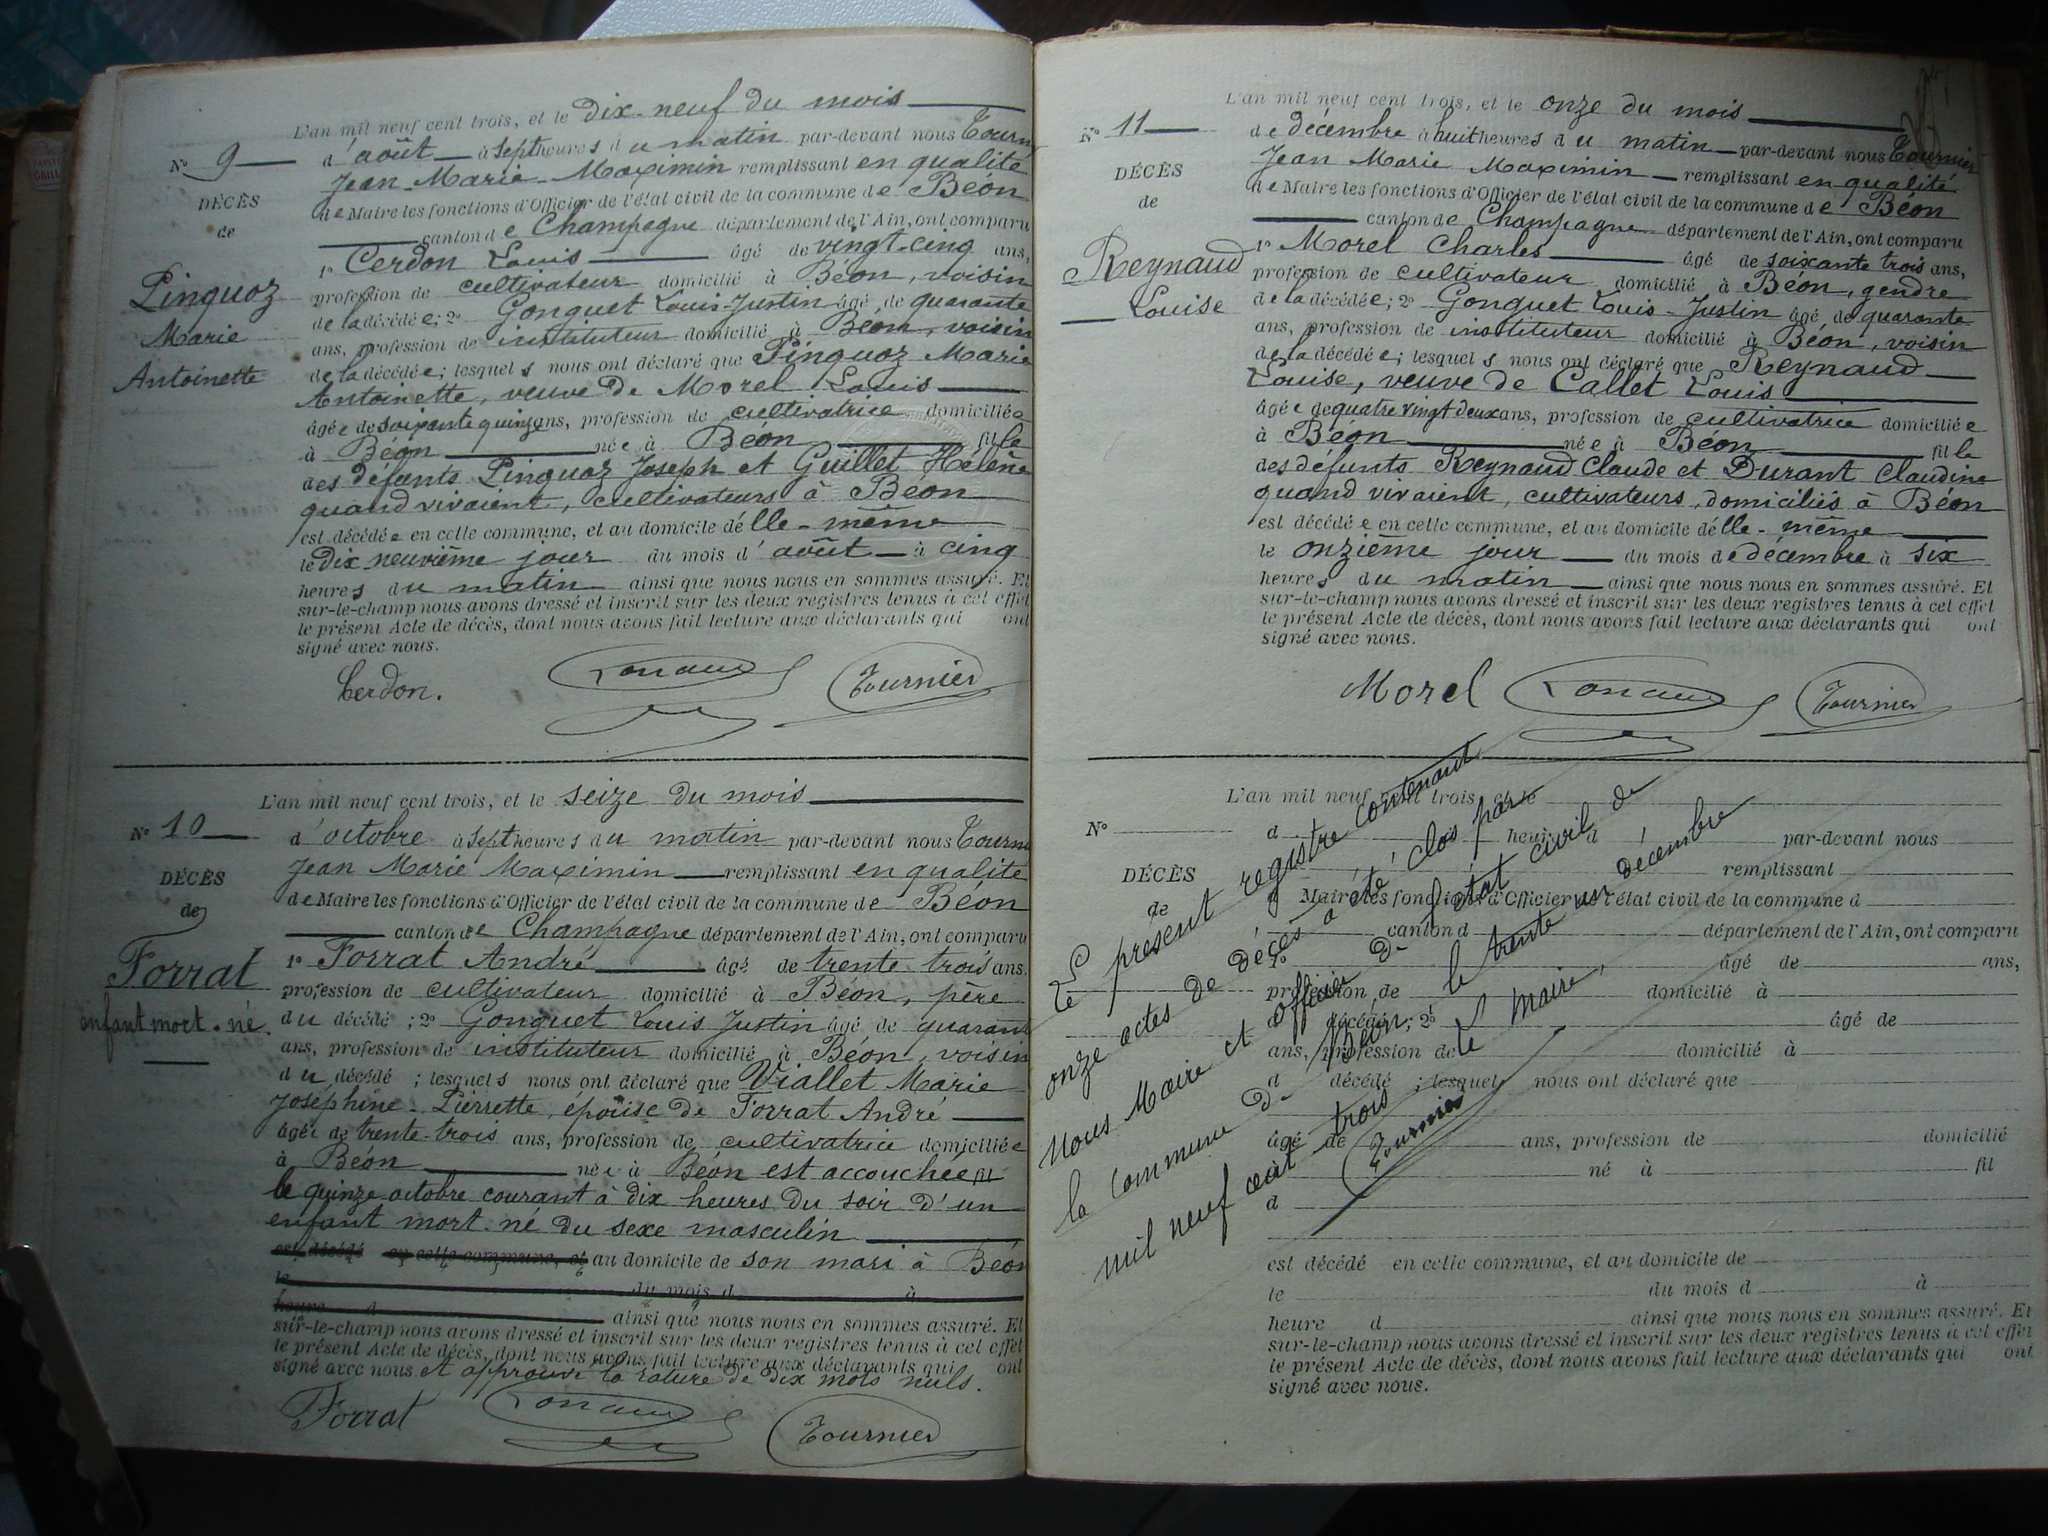 L'an mil neuf cent trois, et le dix-neuf du mois
N° 9
d'août à sept heures du matin par-devant nous Tourni
Jean-Marie-Maximin remplissant en qualité
DÉCÈS
de Maire les fonctions d'Officier de l'état civil de la commune de Béon
de
canton de Champagne département de l'Ain, ont comparu
1° Cerdon Louis âgé de vingt-cinq ans,
Pinquoz
profession de cultivateur domicilié à Béon, voisin
de la décédée; 2° Gonguet Louis-Justin âgé de quarante
Marie
ans, profession de instituteur domicilié à Béon, voisin
Antoinette
de la décédée; lesquels nous ont déclaré que Pinquoz Marie
Antoinette, veuve de Morel Louis
âgée de soixante quinze ans, profession de cultivatrice domiciliée
à Béon née à Béon fille
des défunts Pinquoz Joseph et Guillet Hélène
quand vivaient, cultivateurs à Béon
est décédée en cette commune, et au domicile d'elle-même
le dix-neuvième jour du mois d'août à cinq
heures du matin ainsi que nous nous en sommes assuré. Et
sur-le-champ nous avons dressé et inscrit sur les deux registres tenus à cet effet
le présent Acte de décès, dont nous avons fait lecture aux déclarants qui ont
signé avec nous.
Cerdon. Tournier
L'an mil neuf cent trois, et le seize du mois
N° 10
d'octobre à sept heures du matin par-devant nous Tourni
Jean Marie Maximin remplissant en qualité
DÉCÈS
de Maire les fonctions d'Officier de l'état civil de la commune de Béon
de
canton de Champagne département de l'Ain, ont comparu
Forrat
1° Forrat André âgé de trente-trois ans.
profession de cultivateur domicilié à Béon, père
enfant mort-né.
du décédé; 2° Gonguet Louis Justin âgé de quarant
ans, profession de instituteur domicilié à Béon, voisin
du décédé; lesquels nous ont déclaré que Viallet Marie
Joséphine-Pierrette, épouse de Forrat André
âgée de trente-trois ans, profession de cultivatrice domiciliée
à Béon née à Béon est accouchée fil
le quinze octobre courant à dix heures du soir d'un
enfant mort-né du sexe masculin
est décédé en cette commune, et au domicile de son mari à Béon
le du mois d à
heure d ainsi que nous nous en sommes assuré. Et
sur-le-champ nous avons dressé et inscrit sur les deux registres tenus à cet effet
le présent Acte de décès, dont nous avons fait lecture aux déclarants qui ont
signé avec nous et approuvé la rature de dix mots nuls.
Forrat Tournier
L'an mil neuf cent trois, et le onze du mois
N° 11
de décembre à huit heures du matin par-devant nous Tournier
Jean Marie Maximin remplissant en qualité
DÉCÈS
de Maire les fonctions d'Officier de l'état civil de la commune de Béon
de
canton de Champagne département de l'Ain, ont comparu
Reynaud
1° Morel Charles âgé de soixante trois ans,
profession de cultivateur domicilié à Béon, gendre
Louise
de la décédée; 2° Gonguet Louis-Justin âgé de quarante
ans, profession de instituteur domicilié à Béon, voisin
de la décédée; lesquels nous ont déclaré que Reynaud
Louise, veuve de Callet Louis
âgée de quatre vingt deux ans, profession de cultivatrice domiciliée
à Béon née à Béon fille
des défunts Reynaud Claude et Durant Claudine
quand vivaient, cultivateurs, domiciliés à Béon
est décédée en cette commune, et au domicile d'elle-même
le onzième jour du mois de décembre à six
heures du matin ainsi que nous nous en sommes assuré. Et
sur-le-champ nous avons dressé et inscrit sur les deux registres tenus à cet effet
le présent Acte de décès, dont nous avons fait lecture aux déclarants qui ont
signé avec nous.
Morel Tournier
L'an mil neuf cent trois, et le
N° d heure d par-devant nous
remplissant
DÉCÈS
de
d Maire les fonctions d'Officier de l'état civil de la commune d
canton d département de l'Ain, ont comparu
1° âgé de ans,
profession de domicilié à
d décédé; 2° âgé de
ans, profession de domicilié à
d décédé; lesquels nous ont déclaré que
âgé de ans, profession de domicilié
né à fil
d
est décédé en cette commune, et au domicile de
le du mois d à
heure d ainsi que nous nous en sommes assuré. Et
sur-le-champ nous avons dressé et inscrit sur les deux registres tenus à cet effet
le présent Acte de décès, dont nous avons fait lecture aux déclarants qui ont
signé avec nous.
Le présent registre contenant
onze actes de décès a été clos par
Nous Maire et officier de l'état civil de
la commune de Béon, le trente un décembre
mil neuf cent trois
Le Maire
Tournier